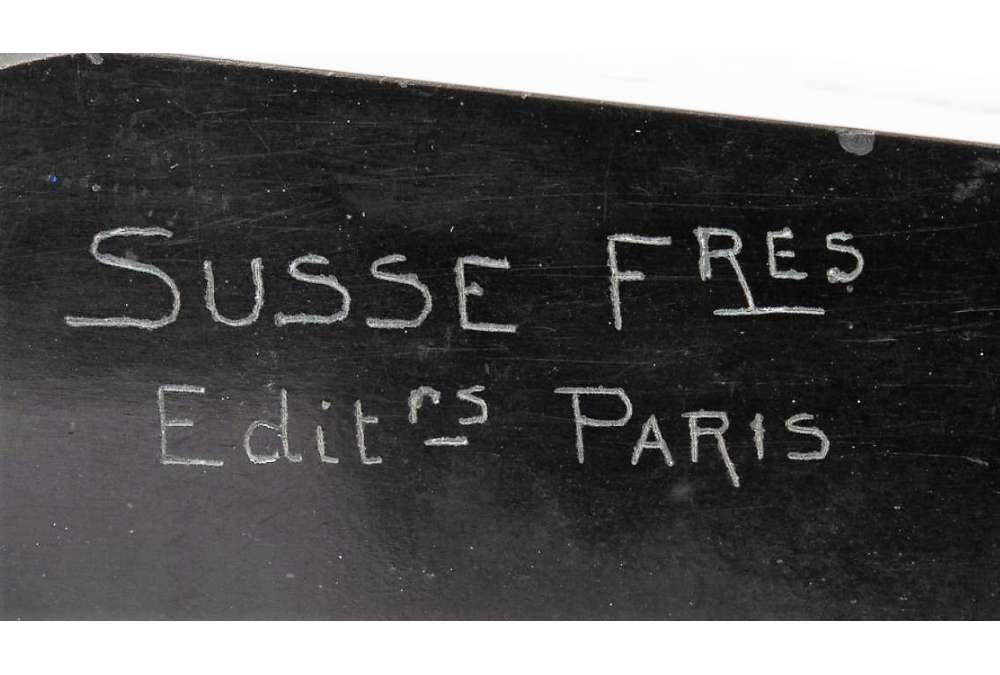 SUSSE FRES
Editrs PARIS